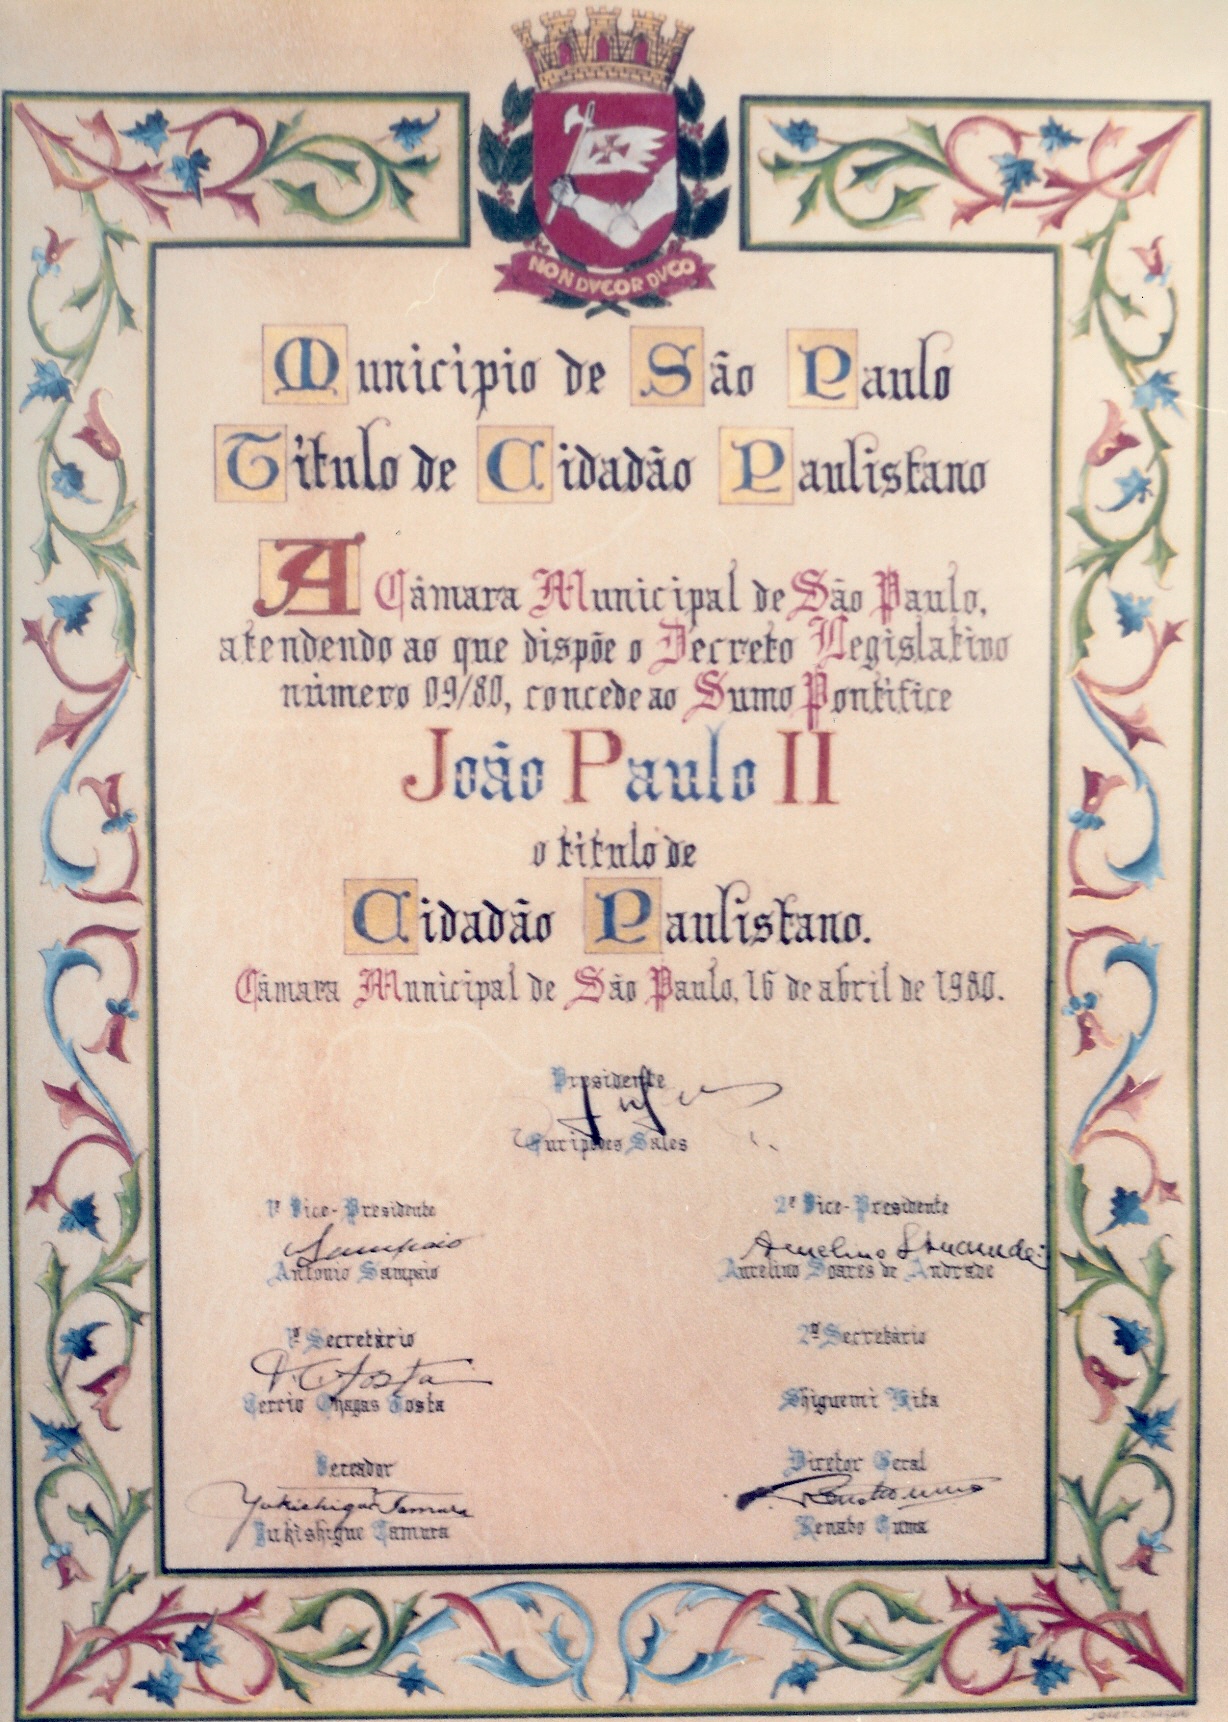 NON DVCOR DVCO
Município de São Paulo
Título de Cidadão Paulistano
A Câmara Municipal de São Paulo,
atendendo ao que dispõe o Decreto Legislativo
número 09/80, concede ao Sumo Pontífice
João Paulo II
o título de
Cidadão Paulistano.
Câmara Municipal de São Paulo, 16 de abril de 1980.
Presidente
Eurípedes Sales
1º Vice-Presidente
Sampaio
Antonio Sampaio
2º Vice-Presidente
Aurelino Soares de Andrade
1º Secretário
Costa
Chagas Costa
2º Secretário
Shiguemi Kita
Vereador
Yukishigue Tamura
Yukishigue Tamura
Diretor Geral
Renato Tuma